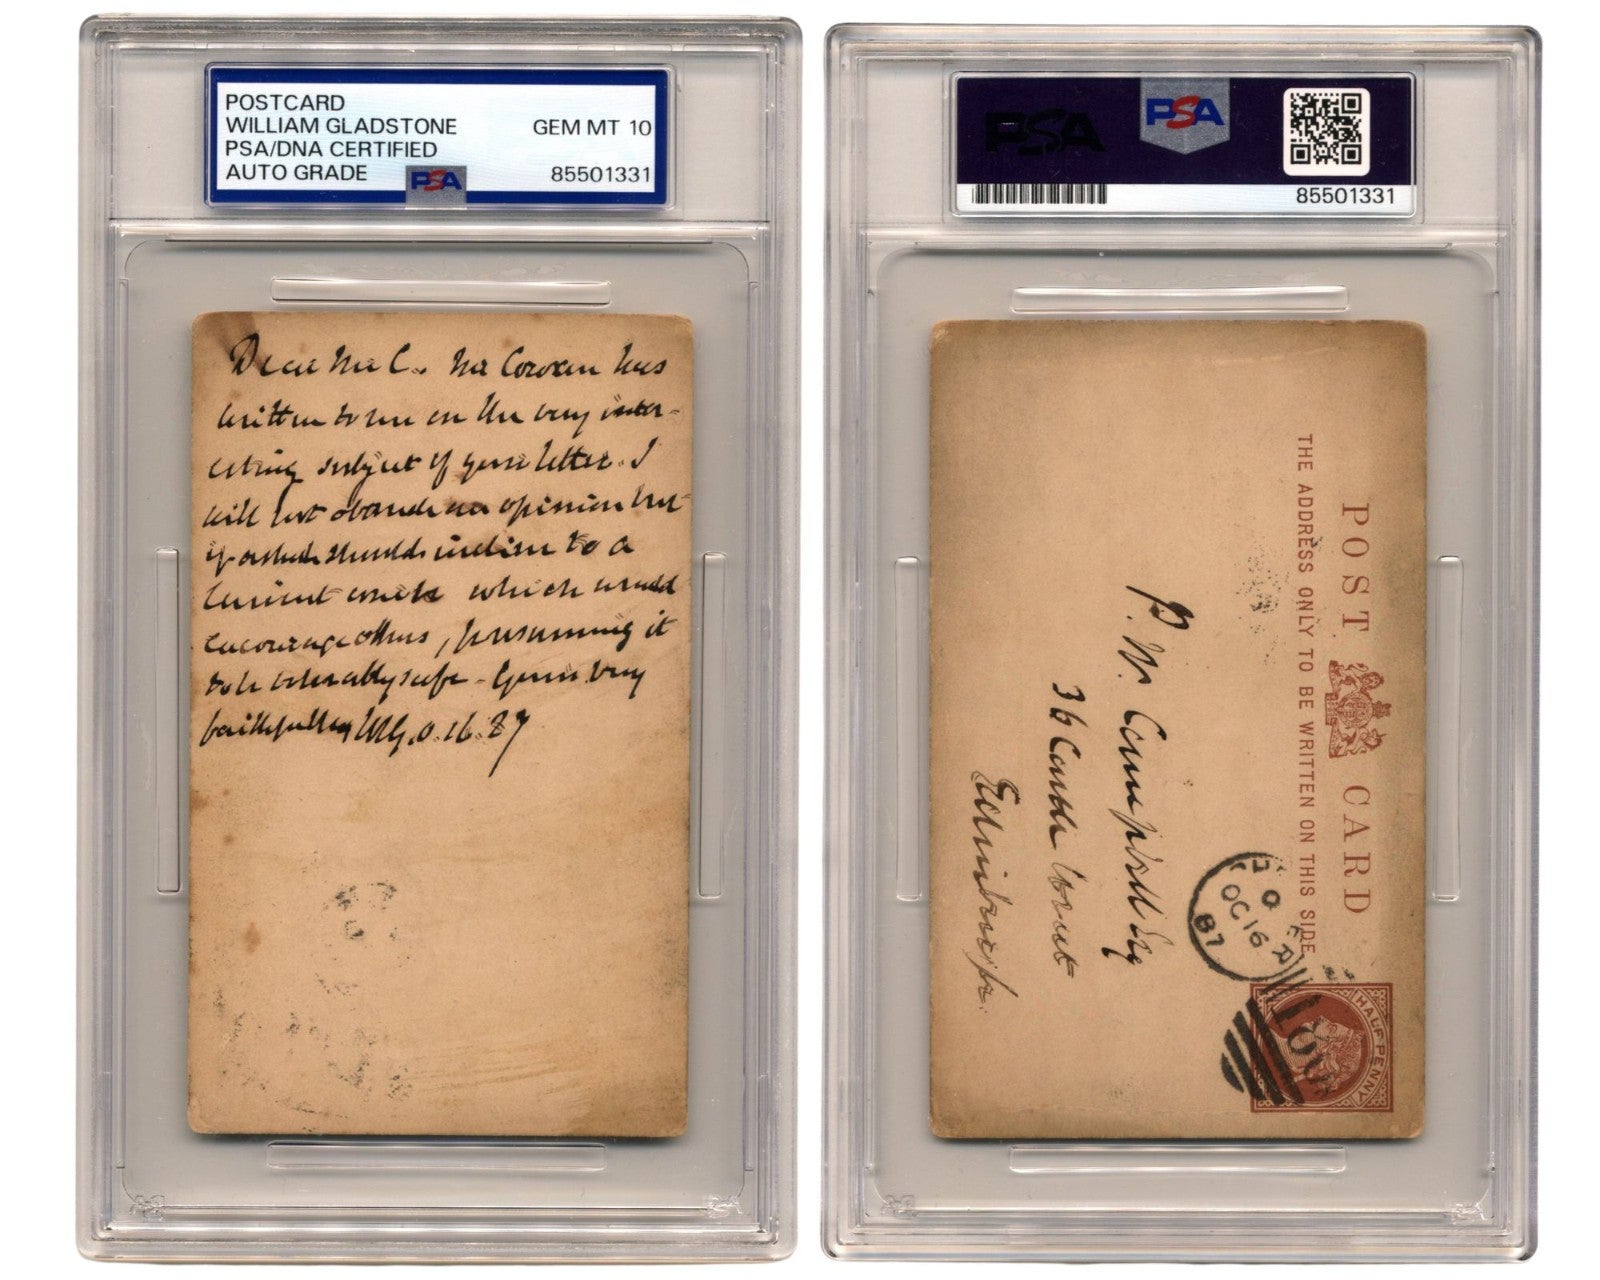 POSTCARD
WILLIAM GLADSTONE GEM MT 10
PSA/DNA CERTIFIED
AUTO GRADE PSA 85501331
Dear Mr C. Mr has
written to me on the very inter-
esting subject of your letter. I
will not an opinion but
if asked should incline to a
which would
encourage others, presuming it
to be tolerably safe. Yours very
faithfully WG. O. 16. 87
PSA PSA
85501331
POST CARD
THE ADDRESS ONLY TO BE WRITTEN ON THIS SIDE
HALF PENNY
OC 16
87
P. W. Campbell Esq
36 Castle
Edinburgh.